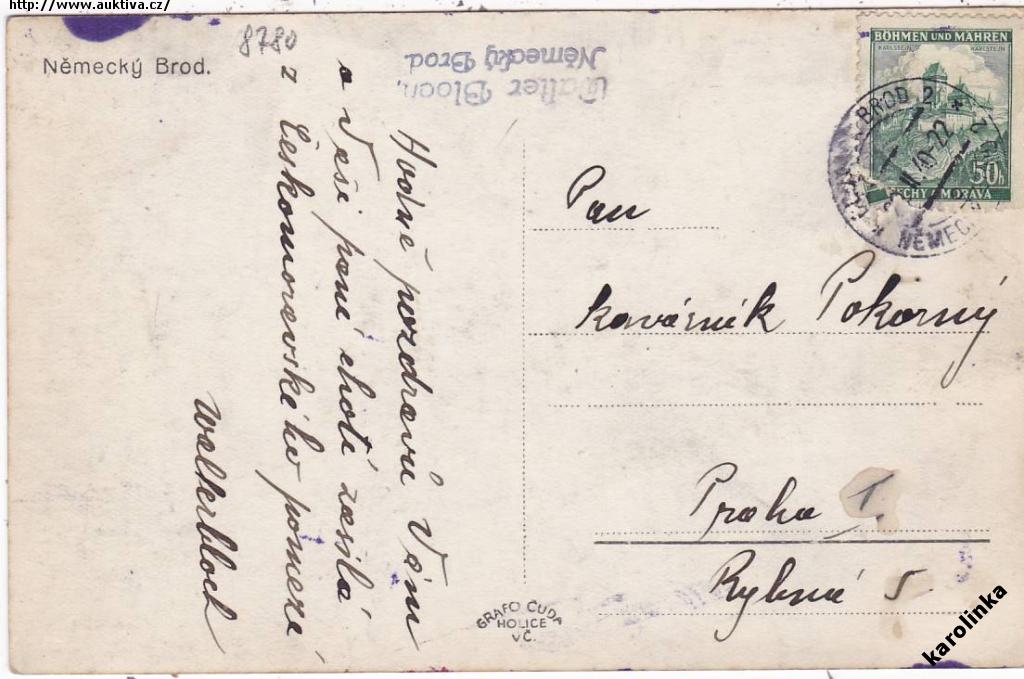 http://www.auktiva.cz/
8780
Německý Brod.
Walter Bloch,
Německý Brod
Hodně pozdravů Vám
a Vaší paní choti zasílá
z Českomoravského pomezí
Walter Bloch
BÖHMEN UND MÄHREN
KARLSTEIN KARLŠTEJN
50h
ČECHY A MORAVA
BROD 2
NĚMEC
Pan
kavárník Pokorný
Praha I.
Rybná 5
GRAFO ČUDA
HOLICE
V Č.
karolinka